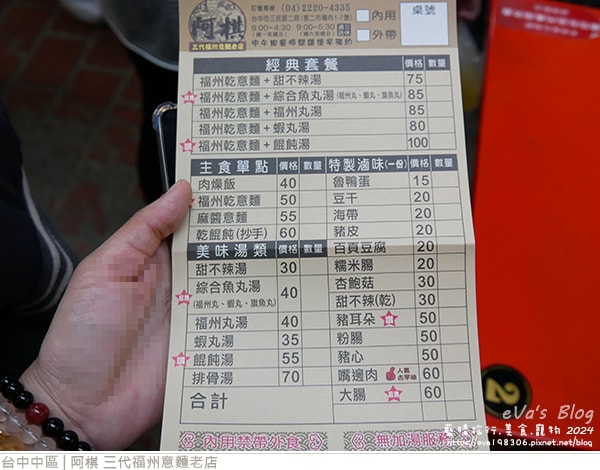 訂餐專線 (04) 2220-4335
台中市三民路二段 (第二市場內1-7號)
9:00-4:30 9:00-5:30
內用
外帶
桌號
阿棋
三代福州意麵老店
經典套餐 價格 數量
福州乾意麵+甜不辣湯 75
福州乾意麵+綜合魚丸湯(福州丸、蝦丸、旗魚丸) 85
福州乾意麵+福州丸湯 85
福州乾意麵+蝦丸湯 80
福州乾意麵+餛飩湯 100
主食單點 價格 數量 特製滷味(一份) 價格 數量
肉燥飯 40 魯鴨蛋 15
福州乾意麵 50 豆干 20
麻醬意麵 55 海帶 20
乾餛飩(抄手) 60 豬皮 20
美味湯類 價格 數量 百頁豆腐 20
甜不辣湯 30 糯米腸 20
綜合魚丸湯 40 杏鮑菇 30
(福州丸、蝦丸、旗魚丸) 甜不辣(乾) 30
福州丸湯 40 豬耳朵 50
蝦丸湯 35 粉腸 50
餛飩湯 55 豬心 50
排骨湯 70 嘴邊肉 人氣古早味 60
合計 大腸 60
內用禁帶外食 無加湯服務
2
eVa's Blog
旅行.美食.寵物 2024
http://eva198306.pixnet.net/blog
台中中區 | 阿棋 三代福州意麵老店